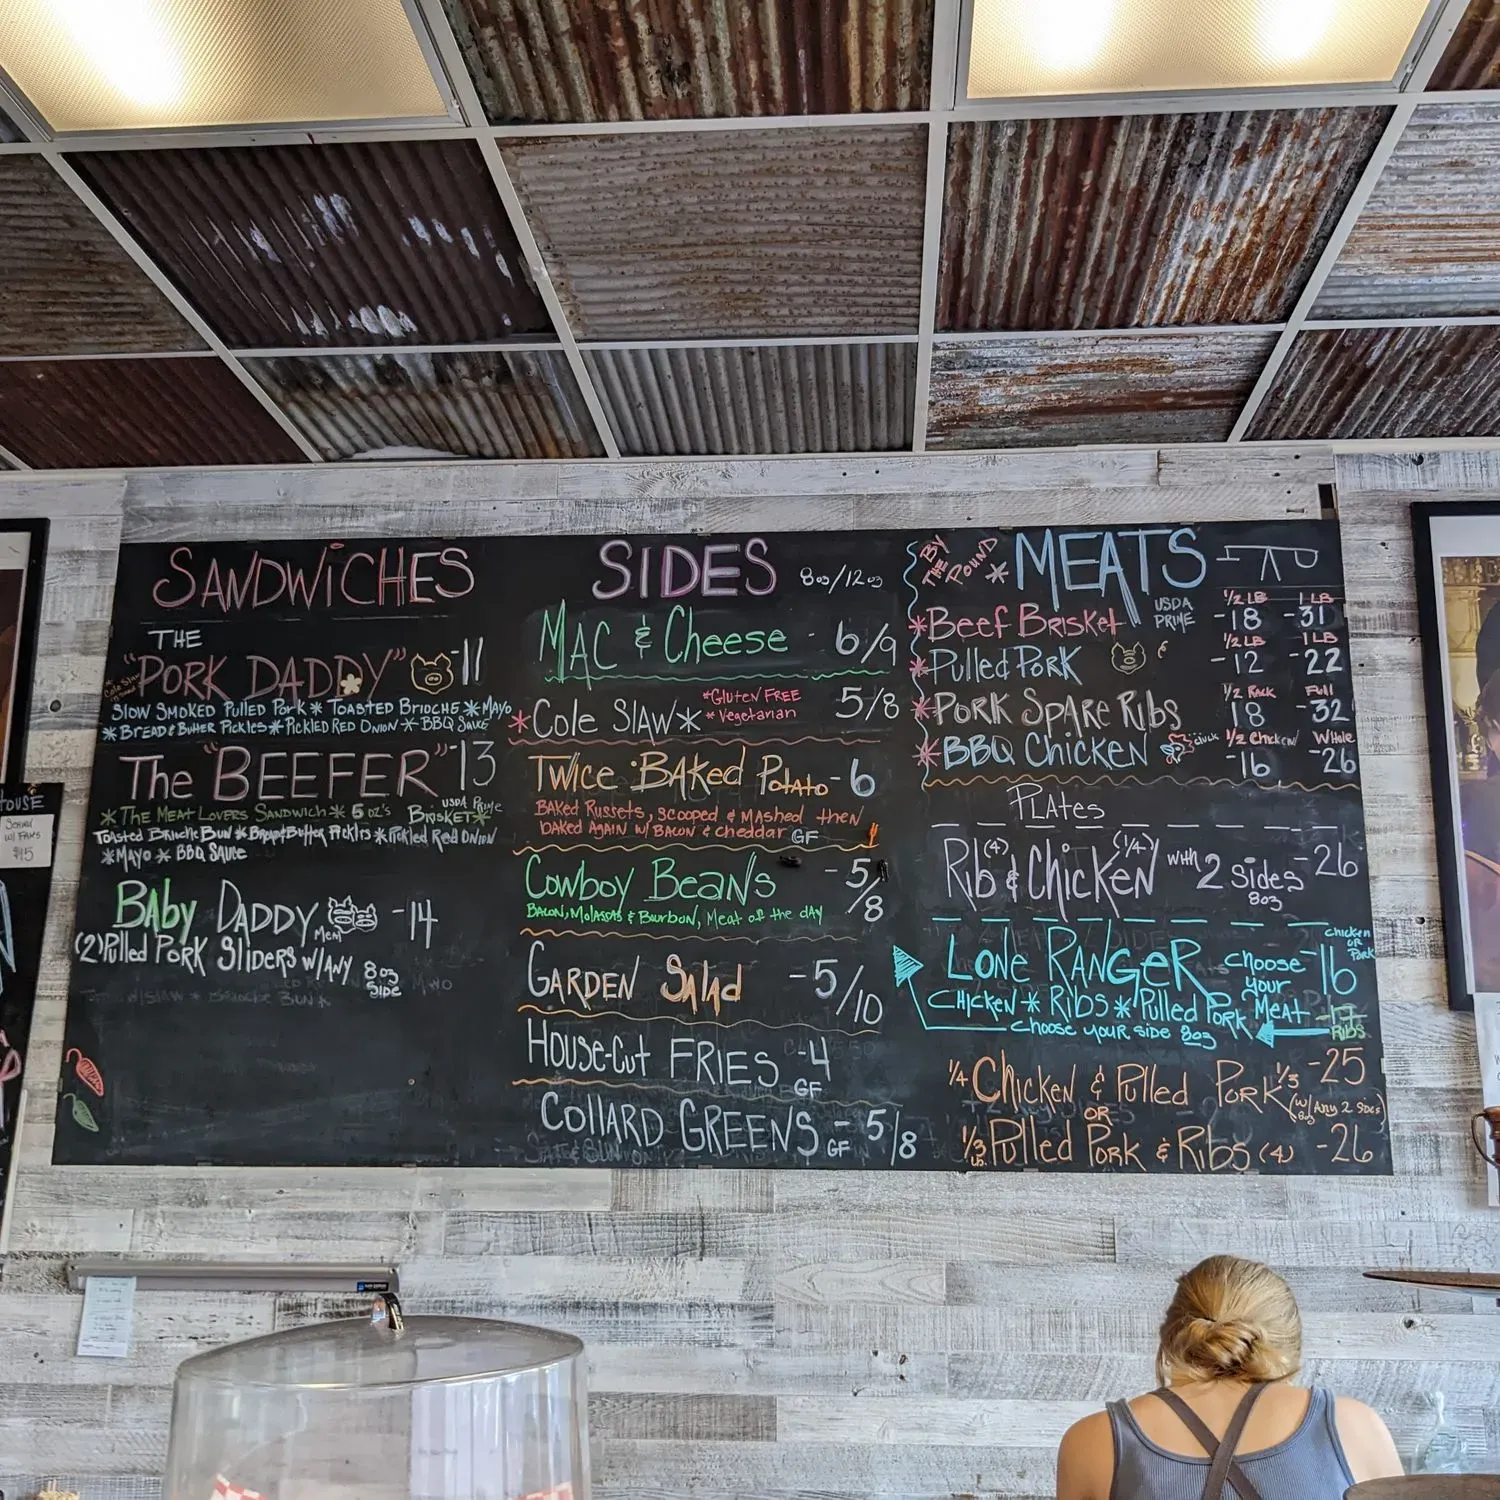 SANDWiCHES
THE
"PORK DADDY" -11
Cole Slaw
SLOW SMOKED Pulled PORK * TOASTED BRIOCHE * MAYO
* BREAD & BUTTER PICKLES * PICKLED RED ONION * BBQ SAUCE
The "BEEFER" -13
* THE MEAT LOVERS SANDWICH * 5 OZ'S USDA Prime BRISKET *
TOASTED BRIOCHE BUN * BREAD & BUTTER PICKLES * PICKLED RED ONION
* MAYO * BBQ SAUCE
BAby DADDY -14
(2) Pulled PORK SlidERS w/ANY 8oz SIDE
SIDES 8oz/12oz
MAC & Cheese - 6/9
* Cole SlAW * 5/8
*GlutEN FREE
*Vegetarian
TWICE BAKed PotAto - 6
BAKED Russets, scooped & MAshed then
baked AgAIN w/ BACON & cheddar GF
CowBoy BeaNs - 5/8
BACON, MolAssas & Bourbon, Meat of the dAy
GARDEN SAlad - 5/10
HOUSE-Cut FRIES - 4
GF
COllARD GREENS - 5/8
GF
THE BY POUND * MEATS
1/2 LB 1 LB
* Beef BRISKET USDA PRIME -18 -31
1/2 LB 1 LB
* Pulled PORK -12 -22
1/2 RACK Full
* PORK SPARE RIBS 18 -32
1/2 Chicken WHole
* BBQ CHICKEN cluck -16 26
PLATES
Rib (4) & ChicKEN (1/4) with 2 SIDES -26
8oz
LONE RANGER choose your Meat -16
chicken OR Pork
CHICKEN * RIBS * Pulled PORK -17
RIBS
choose your side 8oz
1/4 ChickEN & Pulled PORK 1/3 -25
(w/ANY 2 SIDES) 8oz
OR
1/3 LB. Pulled PORK & RIBS (4) -26
OUSE
$15